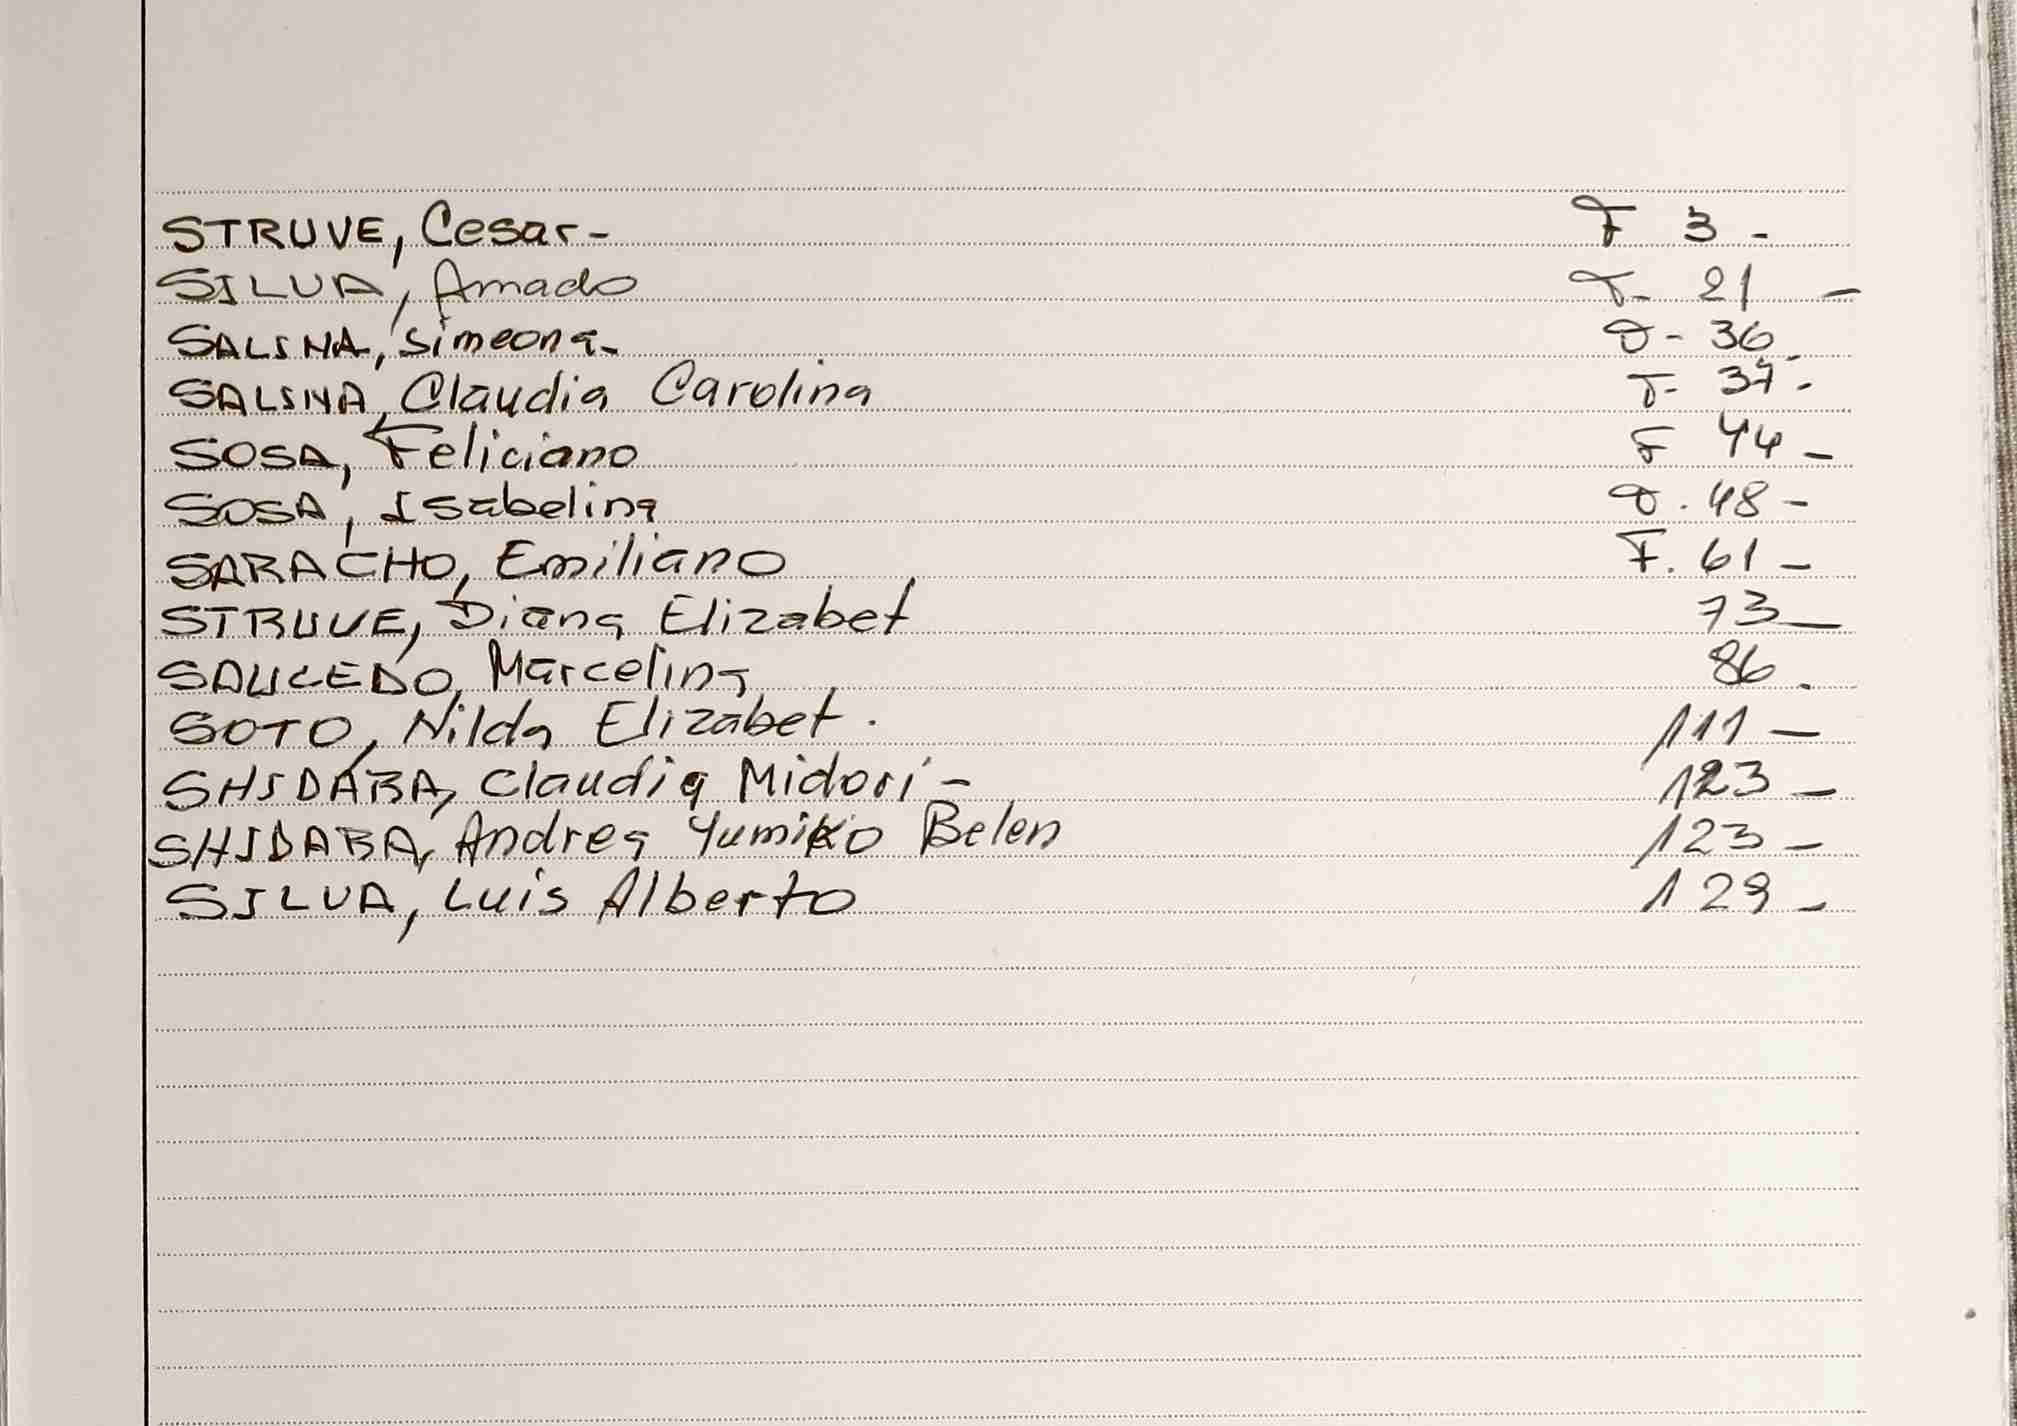 STRUVE, Cesar- F 3 -
SILVA, Amado F- 21 -
SALINA, Simeona- F- 36.
SALINA, Claudia Carolina F- 37.-
SOSA, Feliciano F 44 -
SOSA, Isabelina F. 48 -
SARACHO, Emiliano F. 61 -
STRUVE, Diana Elizabet 73 -
SAUCEDO, Marcelina 86.
SOTO, Nilda Elizabet. 111 -
SHIDARA, Claudia Midori - 123 -
SHIDARA, Andrea Yumiko Belen 123 -
SILVA, Luis Alberto 129 -